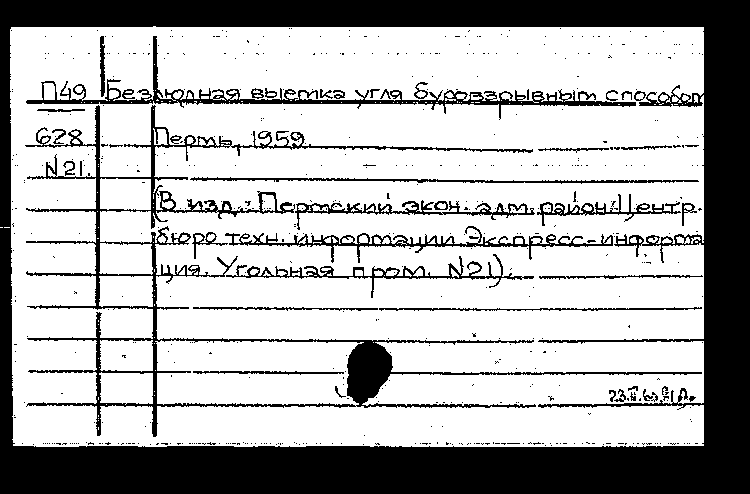 П49 Безлюдная выемка угля буровзрывным способом
628 Пермь, 1959.
N21.
(В изд.: Пермский экон. адм. район. Центр.
бюро техн. информации Экспресс-информа
ция. Угольная пром. N21).